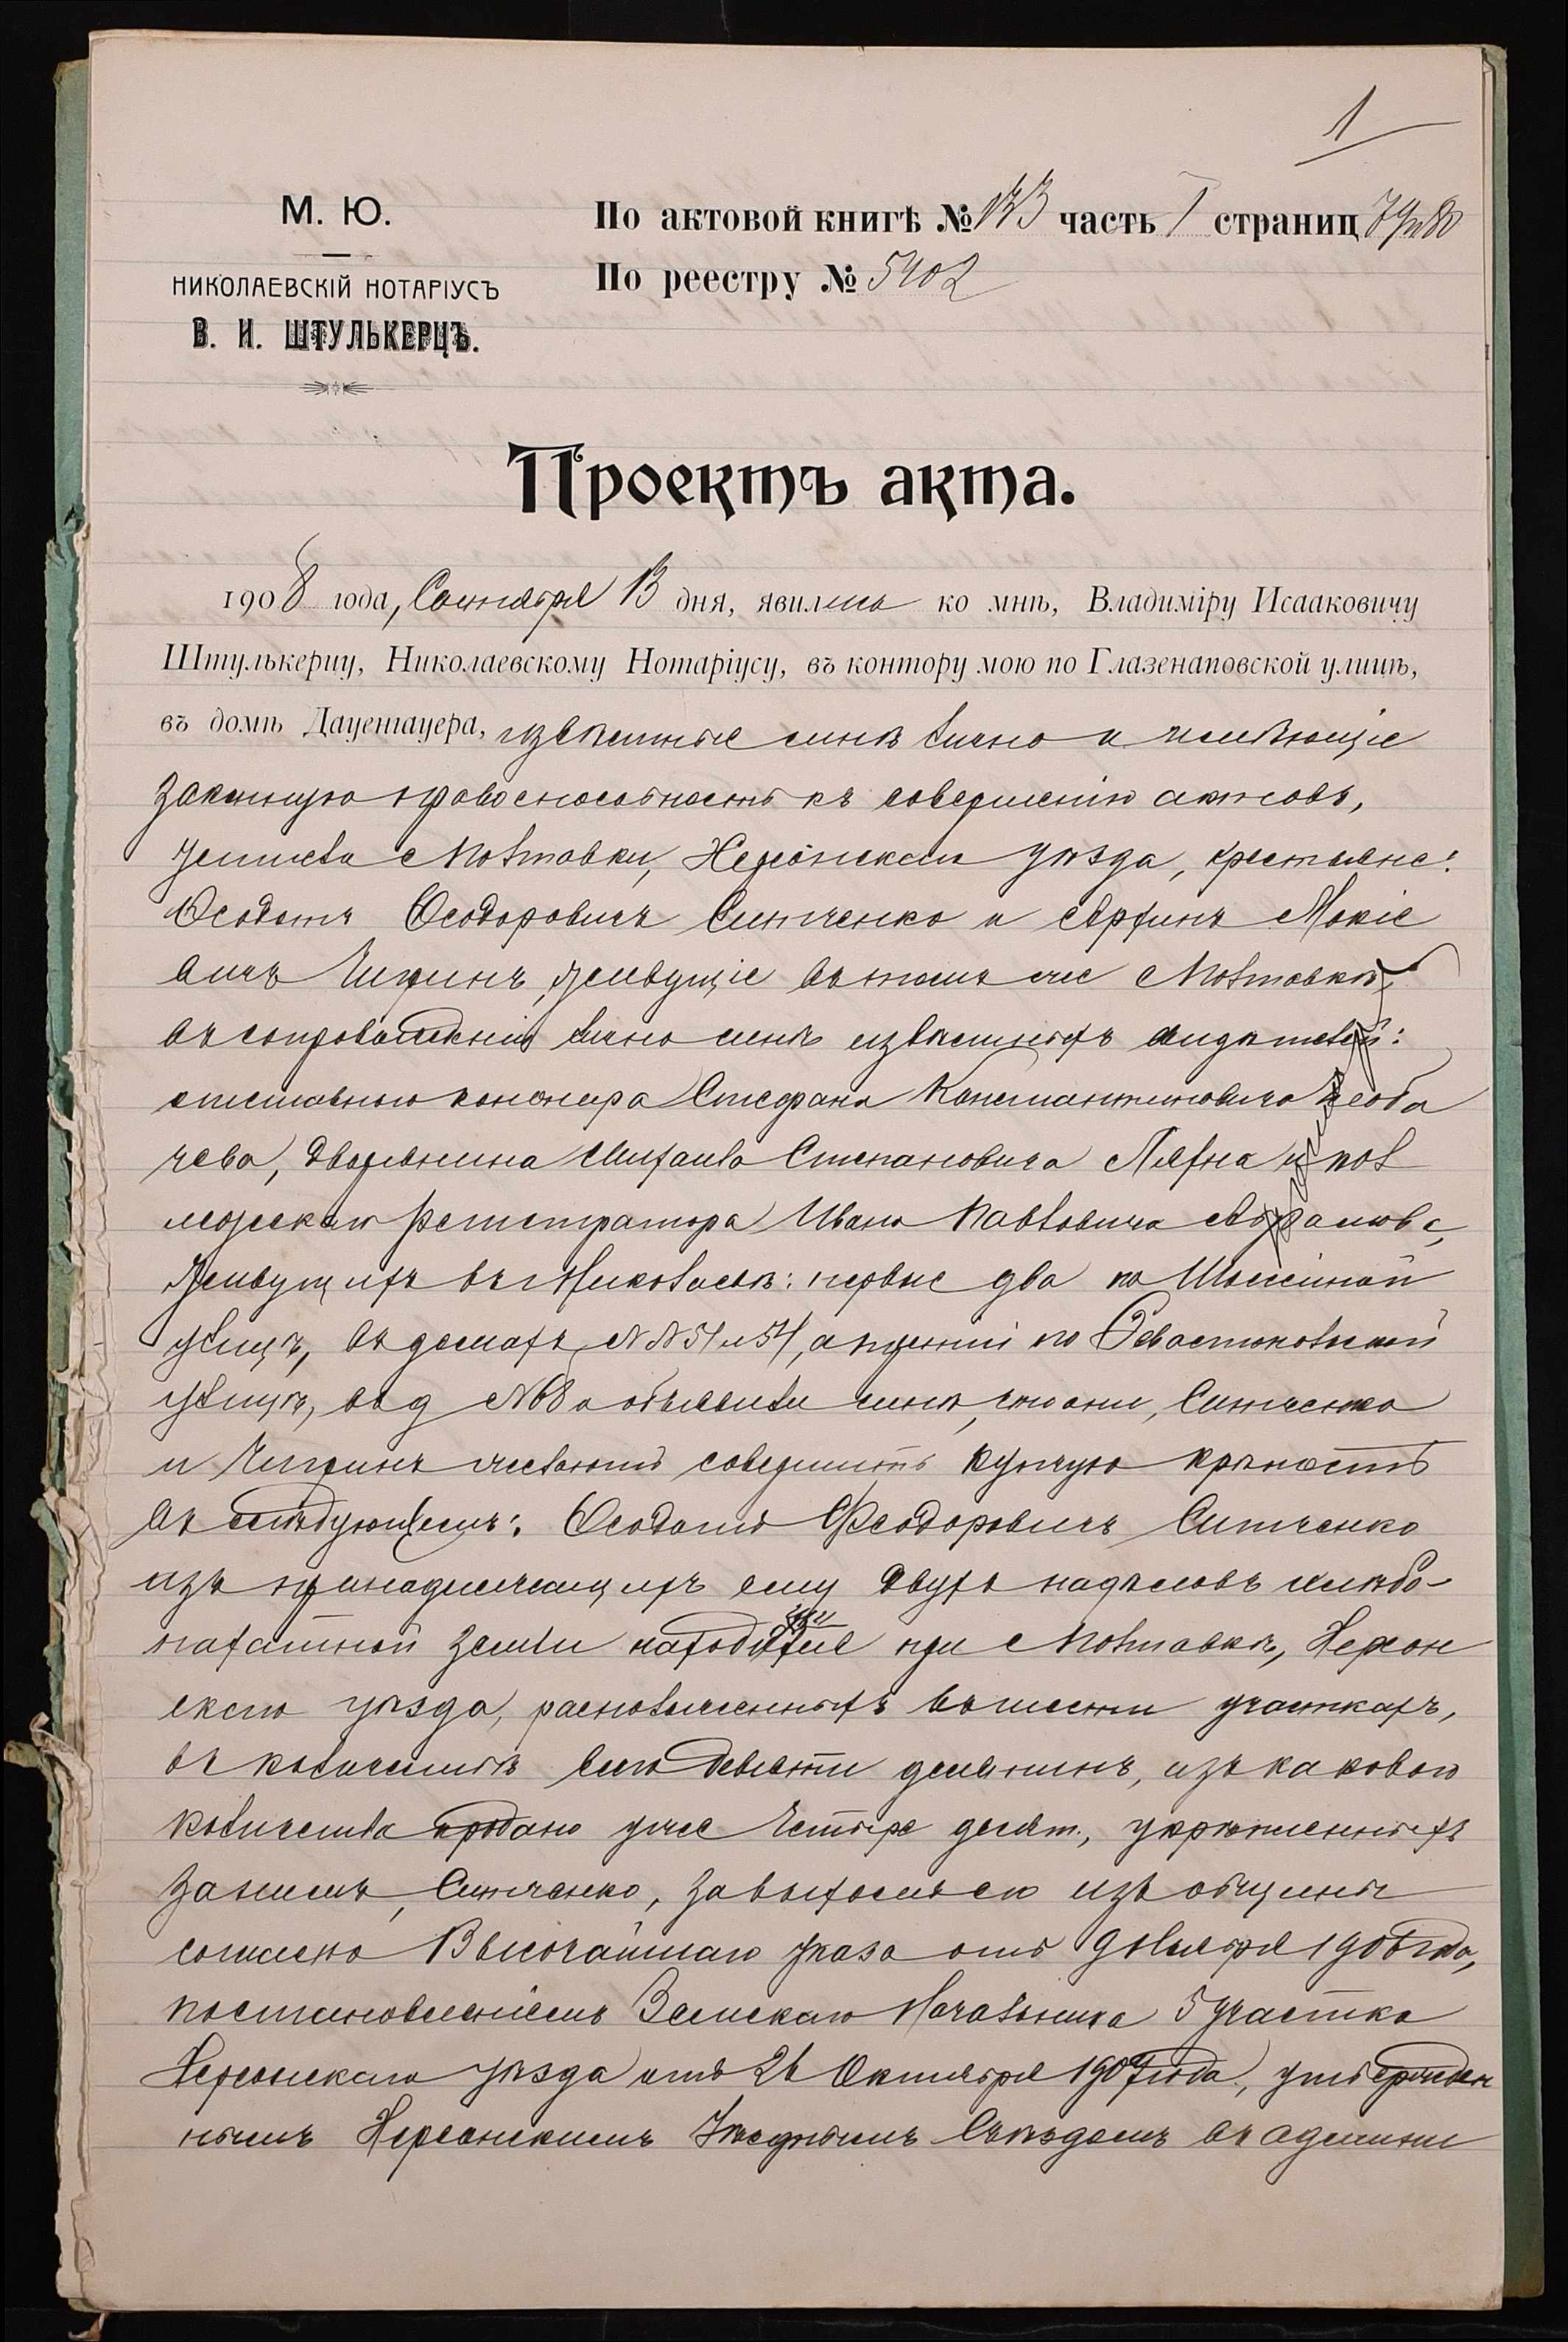 1
М. Ю.
НИКОЛАЕВСКІЙ НОТАРІУСЪ
В. И. ШТУЛЬКЕРЦЪ.
По актовой книгѣ № 133 часть I страниц 79и80
По реестру № 5402
Проектъ акта.
1908 года, Сентября 13 дня, явились ко мнѣ, Владиміру Исааковичу
Штулькерцу, Николаевскому Нотаріусу, въ контору мою по Глазенаповской улицѣ,
въ домѣ Дауенгауера, извѣстные мнѣ лично и имѣющіе
законную правоспособность къ совершенію актовъ,
жители с Полтавки, Херсонскаго уѣзда, крестьяне:
Ѳеодотъ Ѳеодоровичъ Ситченко и Мокіе
вичъ Чигринъ, живущіе въ томъ же с Полтавкѣ,
въ сопровожденіи лично мнѣ извѣстныхъ свидѣтелей:
отставного канонира Стефана Константиновича
чева, дворянина Михаила Степановича и кол
лежскаго регистратора Ивана Павловича
живущихъ въ г Николаевѣ: первые два по
улицѣ, въ домахъ №№ 51 и 54, а третій по Севастопольской
улицѣ, въ д № 68 и объявили мнѣ, что они, Ситченко
и Чигринъ желаютъ совершить купчую крѣпость
въ слѣдующемъ: Ѳеодотъ Ѳеодоровичъ Ситченко
изъ принадлежащихъ ему двухъ надѣловъ хлѣбо-
пахатной земли находящейся при с Полтавкѣ, Херсон
скаго уѣзда, расположенныхъ въ шести участкахъ,
въ количествѣ всего девяти десятинъ, изъ каковаго
количества продано уже четыре десят., укрѣпленныхъ
за нимъ, Ситченко, за выходомъ его изъ общины
согласно Высочайшаго указа отъ 9 Ноября 1906 года,
постановленіемъ Земскаго Начальника 5 участка
Херсонскаго уѣзда отъ 26 Октября 1907 года, утвержден
нымъ Херсонскимъ Уѣзднымъ Съѣздомъ въ админи